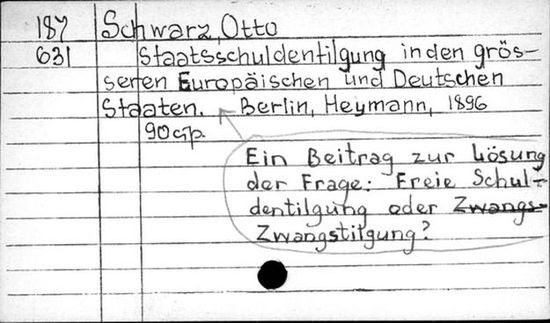 187 Schwarz, Otto
631 Staatsschuldentilgung in den grös-
seren Europäischen und Deutschen
Staaten. Berlin, Heymann, 1896
90 S.
Ein Beitrag zur Lösung
der Frage: Freie Schul-
dentilgung oder Zwangs-
Zwangstilgung?